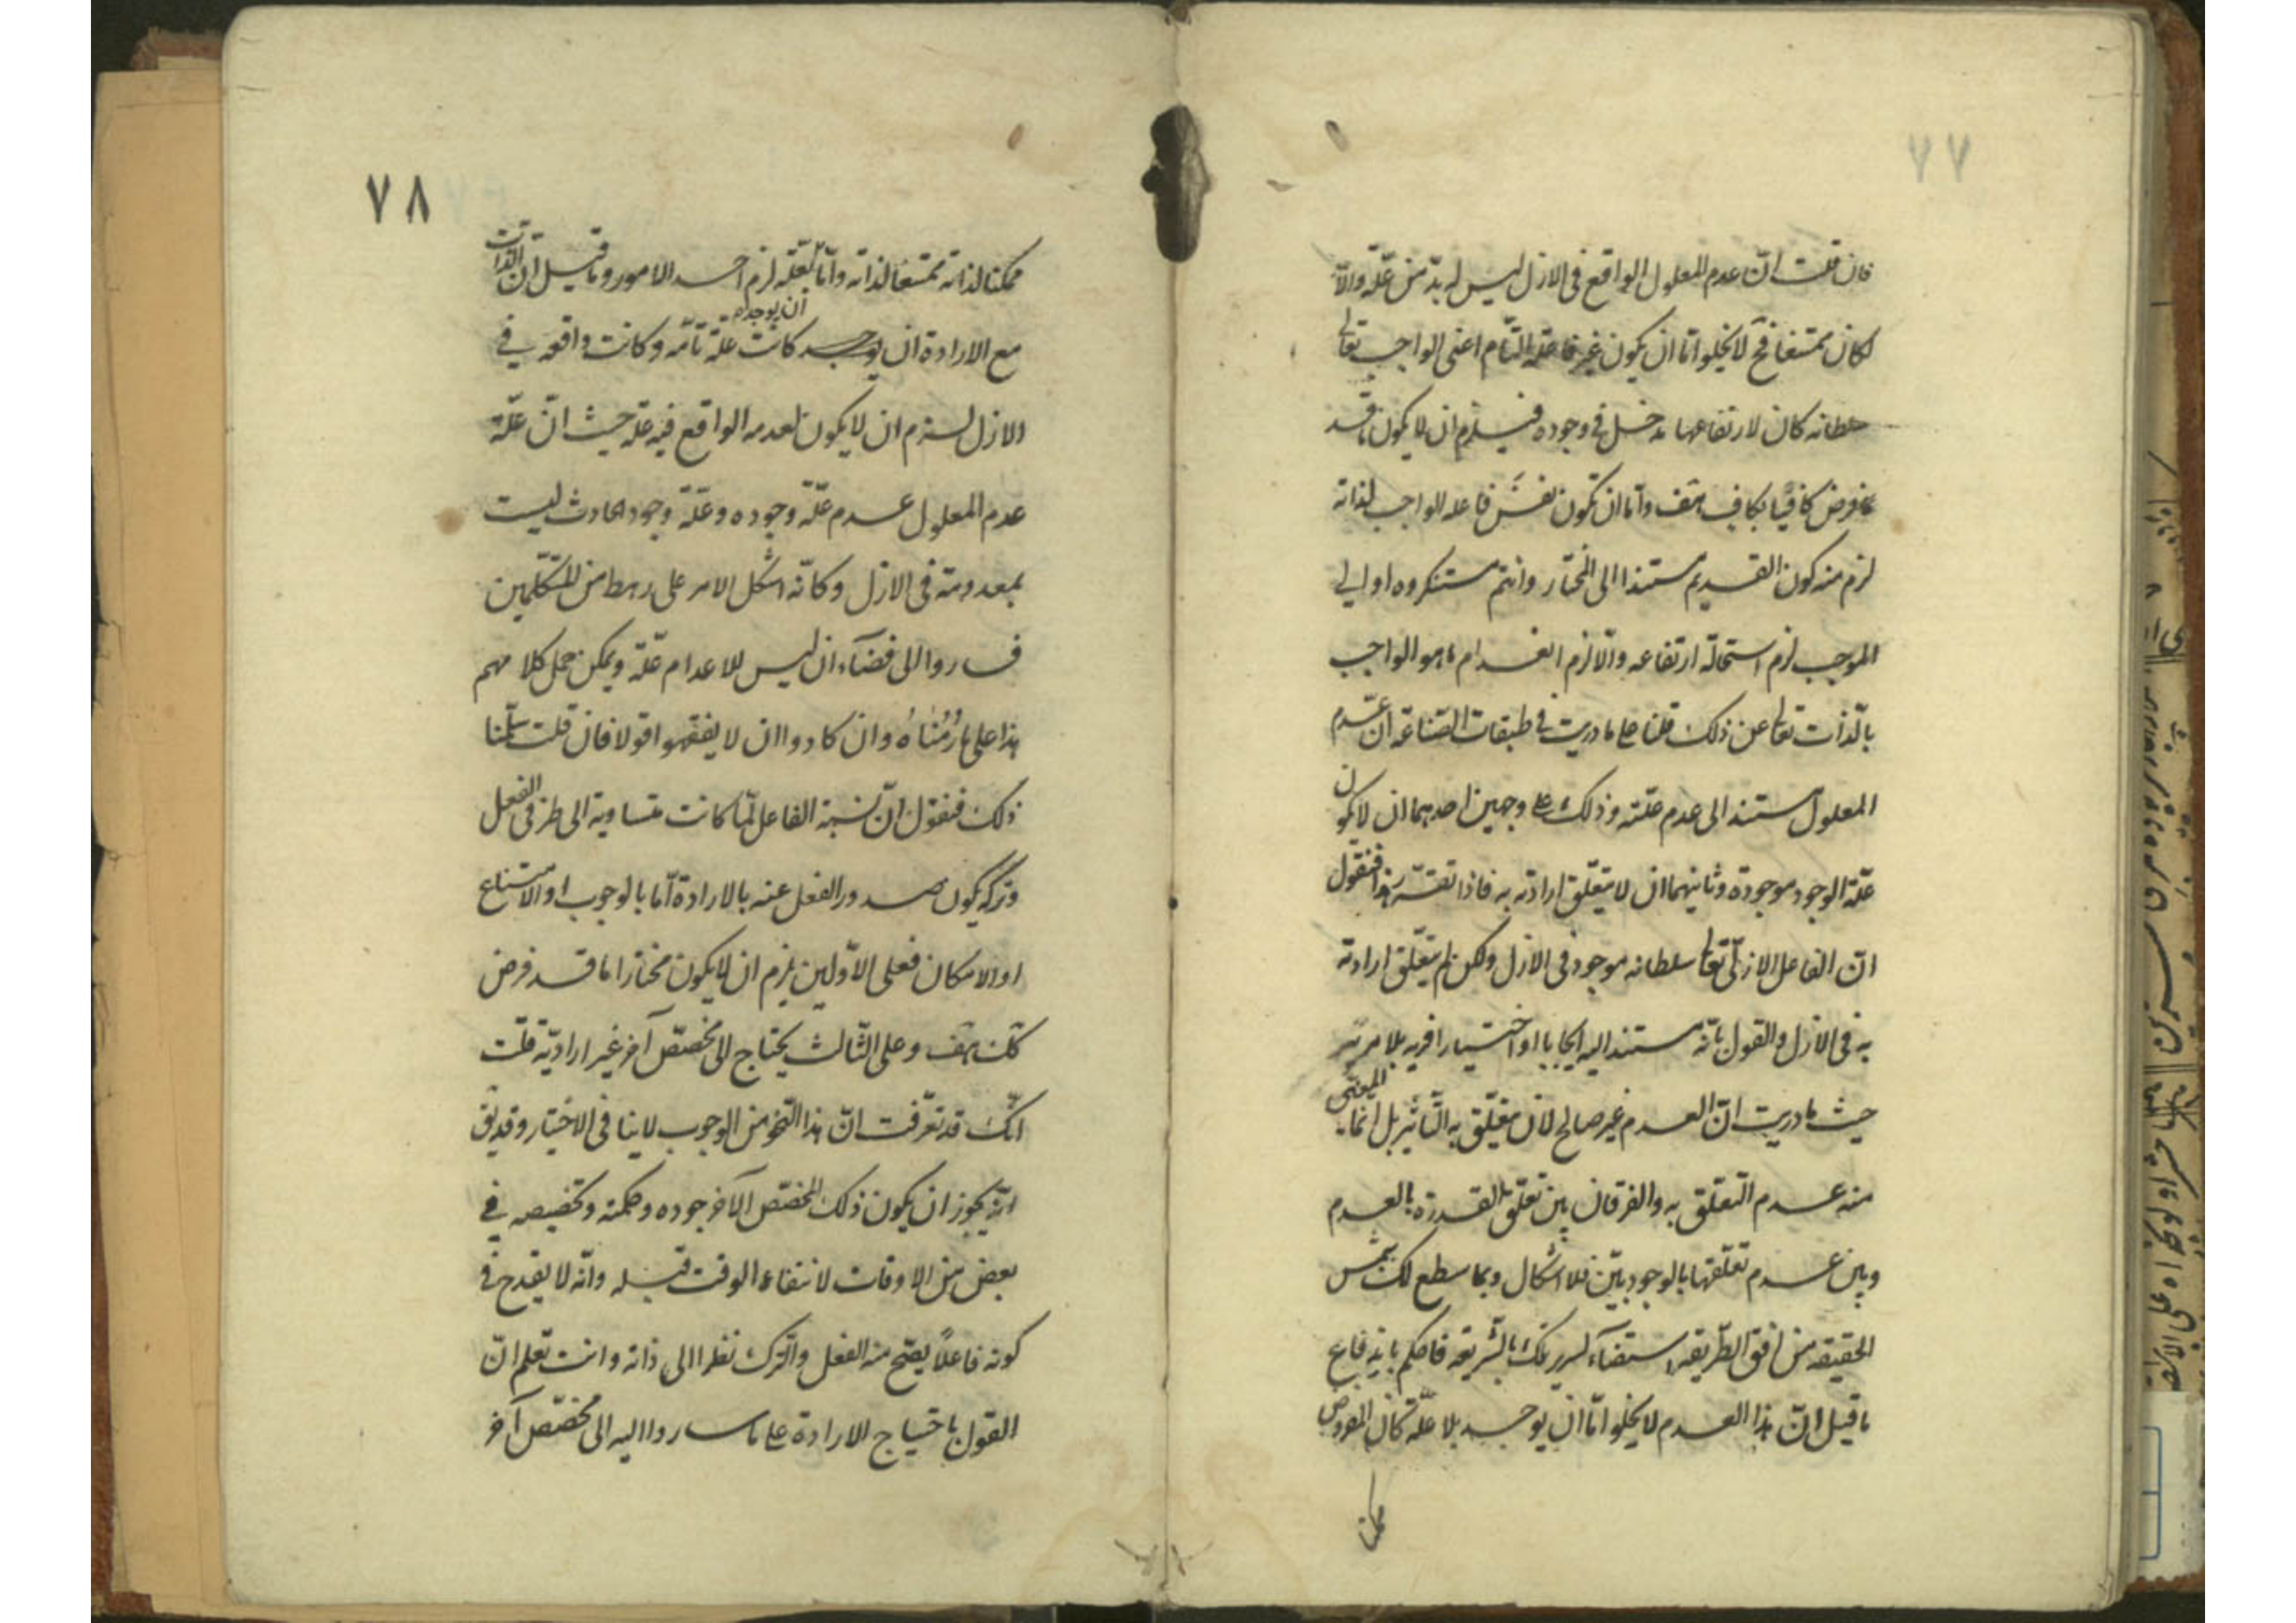 ٧٧
فان قلت انّ عدم المعلول الواقع فى الازل ليس له بدّ من علّة والّا
لكان ممتنعا فح لا يخلو امّا ان يكون غير فاعله التّام اعنى الواجب تعالى
سلطانه كان لارتفاعها مدخل فى وجوده فيلزم ان لا يكون ما قد
فرض كافيا بكاف هف وامّا ان تكون نفس فاعله الواجب لذاته
لزم منه كون القديم مستندا الى المختار وانتم مستنكروه او الى
الموجب لزم استحالة ارتفاعه والّا لزم انعدام ما هو الواجب
بالذّات تعالى عن ذلك قلنا على ما دريت فى طبقات الصّناعة انّ عدم
المعلول مستند الى عدم علّته وذلك على وجهين احدهما ان لا يكون
علّة الوجود موجودة وثانيهما ان لا يتعلّق ارادته به فاذا تقرّر هذا فنقول
انّ الفاعل الازلّى تعالى سلطانه موجود فى الازل ولكن لم يتعلّق ارادته
به فى الازل والقول بانّه مستند اليه ايجابا او اختيارا فرية بلا مرية
حيث ما دريت انّ العدم غير صالح لان يتعلّق به التّأثير بل انّما المعنى
منه عدم التعلّق به والفرقان بين تعلّق القدرة بالعدم
وبين عدم تعلّقها بالوجود بيّن فلا اشكال وبما سطع لك شمس
الحقيقة من افق الطّريقة استضاء لسريرتك الشّريعة فاحكم بانه فاع
ما قيل انّ هذا العدم لا يخلو امّا ان يوجد بلا علّة كان المفروض
ممكنا
٧٨
ممكنا لذاته ممتنعا لذاته وامّا بعلّة لزم احد الامور وما قيل انّ الذّات
مع الارادة ان يوجد كانت علّة تامّة وكانت واقعه فى
ان يوجد
الازل لستزم ان لا يكون لعدمه الواقع فيه علّة حيث انّ علّة
عدم المعلول عدم علّة وجوده وعلّة وجود الحادث ليست
بمعدومة فى الازل وكانّه اشكل الامر على رهط من المتكلّمين
فساروا الى قضاء ان ليس للاعدام علّة ويمكن حمل كلامهم
هذا على ما رُمْناهُ وان كادوا ان لا يفقهوا قولا فان قلت سلّمنا
ذلك فنقول انّ نسبة الفاعل لمّا كانت متساوية الى طرفى الفعل
وتركه يكون صدور الفعل عنه بالارادة امّا بالوجوب او الامتناع
او الامكان فعلى الاوّلين يلزم ان لا يكون مختارا ما قد فرض
كك هف وعلى الثّالث يحتاج الى مخصّص آخر غير ارادية قلت
انّك قد تعرّفت انّ هذا النّحو من الوجوب لا ينافى الاختيار وقد يق
انّه يجوز ان يكون ذلك المخصّص الآخر جوده وحكمته وتخصيصه فى
بعض من الاوقات لانتفاء الوقت قبله وانّه لا يقدح فى
كونه فاعلًا يصّح منه الفعل والترك نظرا الى ذاته وانت تعلم انّ
القول باحتياج الارادة على ما ساروا اليه الى مخصّص آخر